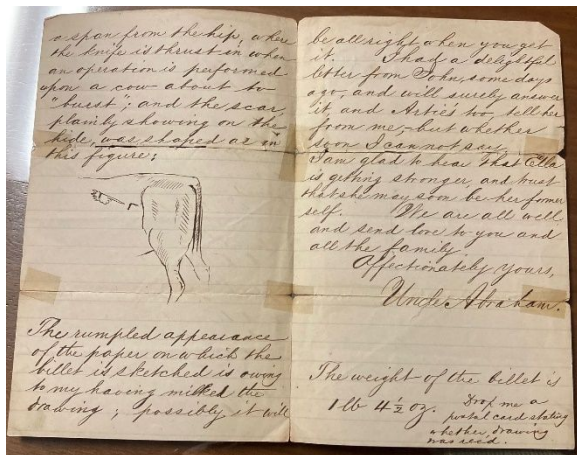 a span from the hip, where
the knife is thrust in when
an operation is performed
upon a cow about to
"burst"; and the scar,
plainly showing on the
hide, was shaped as in
this figure:
The rumpled appearance
of the paper on which the
billet is sketched is owing
to my having milked the
drawing; possibly it will
be all right when you get
it. I had a delightful
letter from John, some days
ago, and will surely answer
it and Artie's too, tell her
from me,—but whether
soon I cannot say.
I am glad to hear that Ella
is getting stronger, and trust
that she may soon be her former
self. We are all well
and send love to you and
all the family
Affectionately yours,
Uncle Abraham.
The weight of the billet is
1 lb 4½ oz.
Drop me a
postal card stating
whether drawing
was recd.